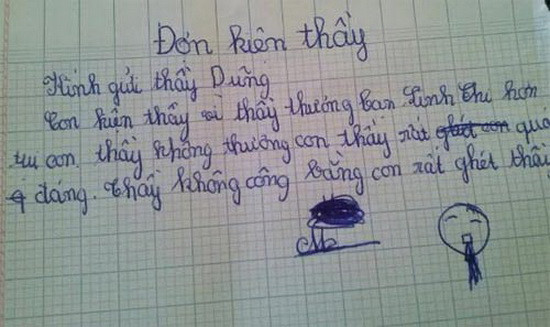 Đơn kiện thầy
Kính gửi thầy Dũng
Con kiện thầy vì thầy thương bạn Linh Chi hơn
con. thầy không thương con thầy rất quá
đáng. thầy không công bằng con rất ghét thầy